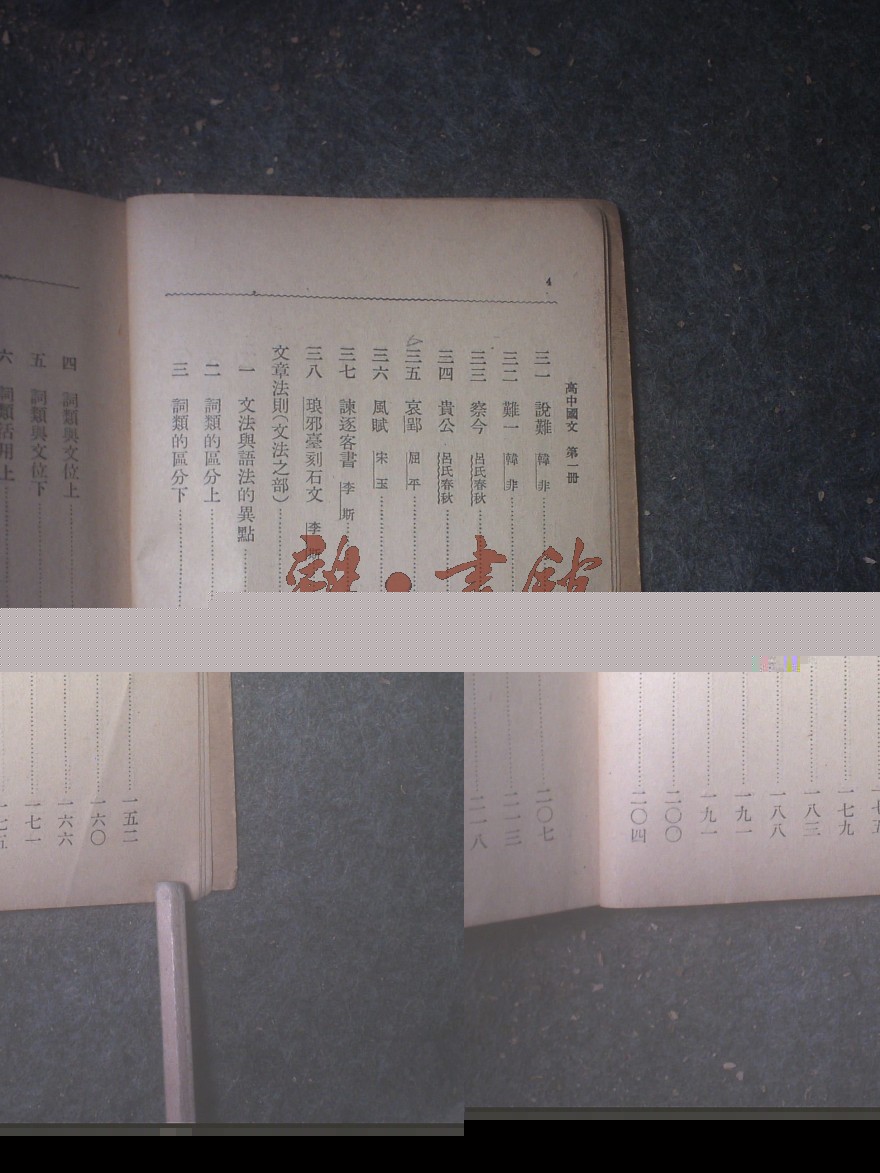 4
高中國文 第一冊
三一 說難 韓非
三二 難一 韓非
三三 察今 呂氏春秋
三四 貴公 呂氏春秋
三五 哀郢 屈平
三六 風賦 宋玉
三七 諫逐客書 李斯
三八 琅邪臺刻石文 李斯
文章法則(文法之部)
一 文法與語法的異點
二 詞類的區分上
三 詞類的區分下
四 詞類與文位上
五 詞類與文位下
六 詞類活用上
一五二
一六〇
一六六
一七一
一七五
一七五
一七九
一八三
一八八
一九一
一九一
二〇〇
二〇四
二〇七
二一三
二一八